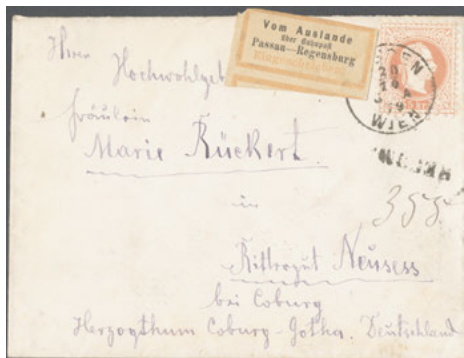 Vom Auslande
über Bahnpost
Passau—Regensburg
Eingeschrieben.
Ihrer Hochwohlgeb
Fräulein
Marie Rückert.
in
Rittergut Neusess
bei Coburg
Herzogthum Coburg-Gotha. Deutschland
WIEN
RECOM
355.